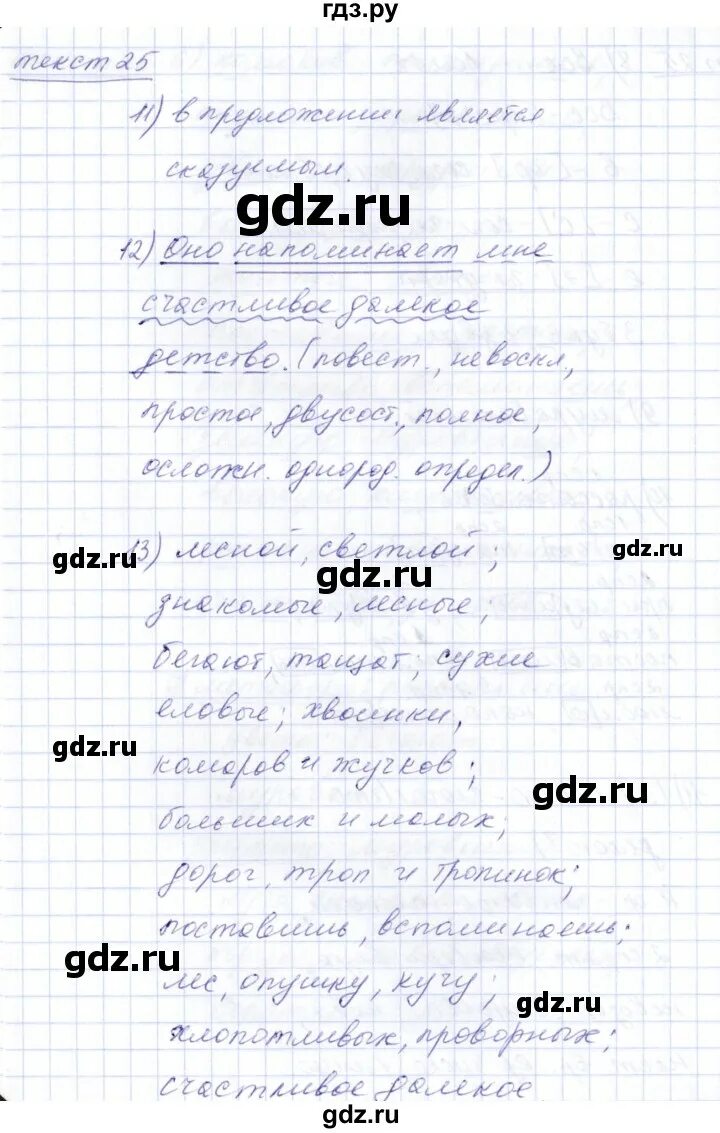 гдз.ру
текст 25
11) в предложении является
сказуемым.
gdz.ru
12) Оно напоминает мне
счастливое далекое
детство. (повест., невоскл.,
простое, двусост., полное,
осложн. однород. определ.)
gdz.ru
13) лесной, светлой;
gdz.ru
gdz.ru
знакомые, лесные;
бегают, тащат; сухие
еловые; хвоинки,
gdz.ru
комаров и жучков;
gdz.ru
больших и малых;
дорог, троп и тропинок;
поставишь, вспоминаешь;
gdz.ru
лес, опушку, кучу;
gdz.ru
хлопотливых, проворных;
счастливое далекое
gdz.ru